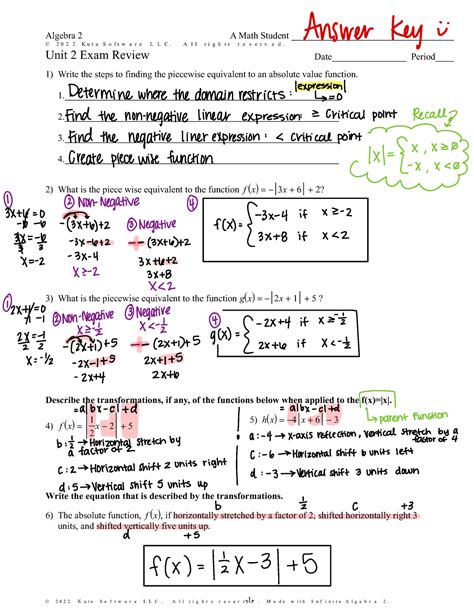 Algebra 2
A Math Student Answer Key
© 2022 Kuta Software LLC. All rights reserved.
Unit 2 Exam Review
Date Period
1) Write the steps to finding the piecewise equivalent to an absolute value function.
1. Determine where the domain restricts: |expression| → =0
2. Find the non-negative linear expression: ≥ Critical point
3. Find the negative liner expression: < Critical point
4. Create piece wise function
Recall?
|x| = { x, x≥0
-x, x<0
2) What is the piece wise equivalent to the function f(x) = −|3x + 6| + 2?
① 3x+6=0
-6 -6
3x=-6
3 3
x=-2
② Non-Negative
-(3x+6)+2
-3x-6+2
-3x-4
x≥-2
③ Negative
--(3x+6)+2
3x+6+2
3x+8
x<2
④
f(x)= { -3x-4 if x≥-2
3x+8 if x<2
3) What is the piecewise equivalent to the function g(x) = −|2x + 1| + 5 ?
① 2x+1=0
-1 -1
2x=-1
2 2
x=-1/2
② Non-Negative
x≥-1/2
-(2x+1)+5
-2x-1+5
-2x+4
③ Negative
x<-1/2
--(2x+1)+5
2x+1+5
2x+6
④
g(x)= { -2x+4 if x≥-1/2
2x+6 if x<-1/2
Describe the transformations, if any, of the functions below when applied to the f(x)=|x|.
→ parent function
=a|bx-c|+d
4) f(x) = |1/2 x − 2| + 5
b: 1/2 → Horizontal stretch by a factor of 2
c: 2 → Horizontal shift 2 units right
d: 5 → Vertical shift 5 units up
=a|bx-c|+d
5) h(x) = −4|x + 6| − 3
a: -4 → x-axis reflection, vertical stretch by a factor of 4
c: -6 → Horizontal shift 6 units left
d: -3 → Vertical shift 3 units down
Write the equation that is described by the transformations.
b 1/2 c +3
6) The absolute function, f(x), if horizontally stretched by a factor of 2, shifted horizontally right 3
units, and shifted vertically five units up.
d +5
f(x) = |1/2 x-3| +5
© 2022 Kuta Software LLC. All rights reserved. Made with Infinite Algebra 2.